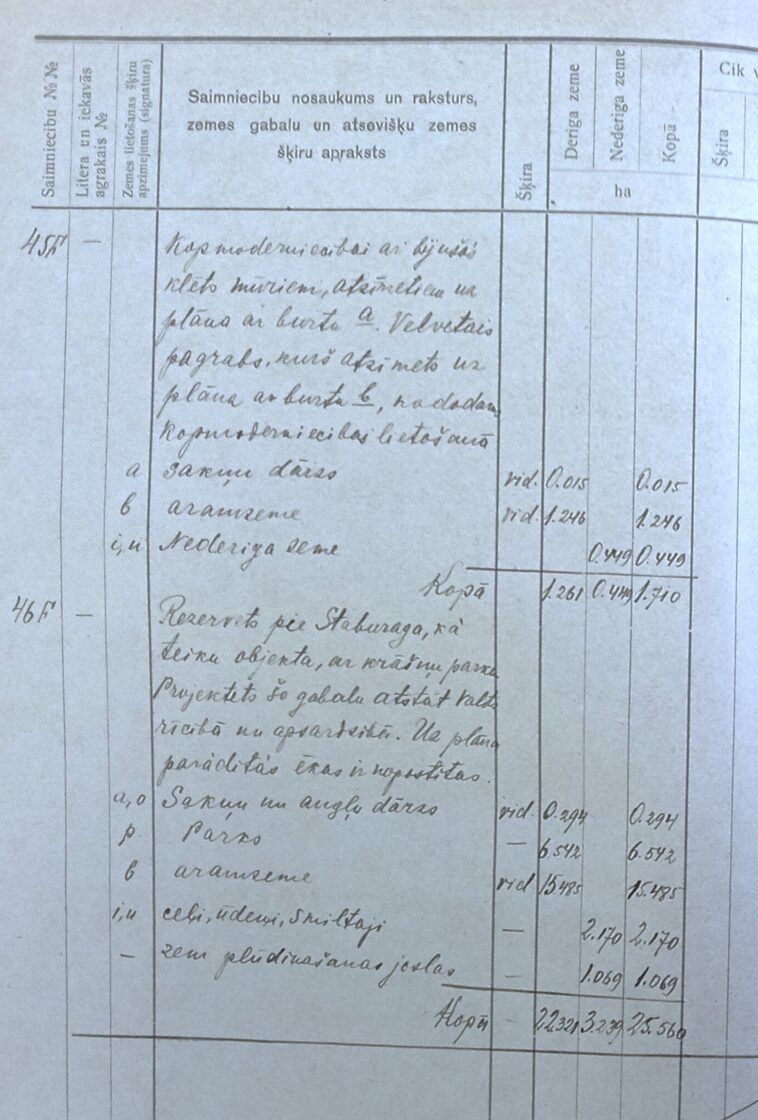 Saimniecibu №№
Litera un iekavās agrakais №
Zemes lietošanas šķiru apzimejums (signatura)
Saimniecibu nosaukums un raksturs,
zemes gabalu un atsevišķu zemes
šķiru apraksts
Šķira
Deriga zeme
Nederiga zeme
Kopā
ha
Cik
Šķira
45F — Kopmoderniecibai ar bijušās
klēts mūriem, atzīmetiem uz
plāna ar burtu a. Velvetais
pagrabs, kurš atzīmets uz
plāna ar burtu b, nododams
kopmoderniecibas lietošanā
a Sakņu dārzs vid. 0.015 0.015
b aramzeme vid 1.246 1.246
i,u Nederiga zeme 0.449 0.449
Kopā 1.261 0.449 1.710
46F — Rezervets pie Staburaga, kā
teiku objekta, ar krāšņu parku
Projektets šo gabalu atstāt valsts
rīcibā un apsardzibā. Uz plāna
parāditās ēkas ir nopostitas.
a,o Sakņu un augļu dārzs vid. 0.294 0.294
p. Parks — 6.542 6.542
b aramzeme vid 15.485 15.485
i,u ceļi, ūdeņi, smiltaji — 2.170 2.170
— zem plūdinašanas joslas — 1.069 1.069
Kopā — 22.321 3.239 25.560